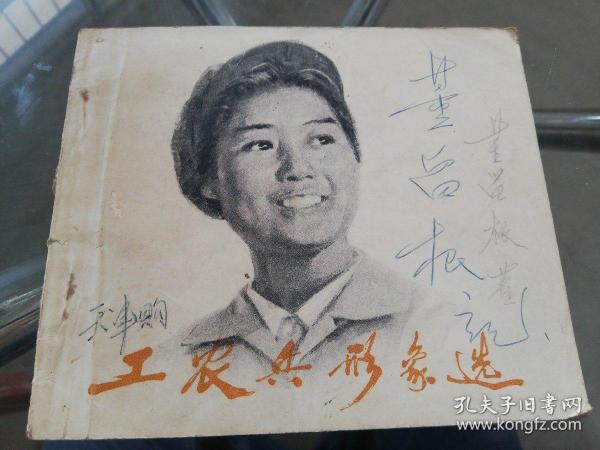 董留根記
董留根
天津
工农兵形象选
孔夫子旧书网
www.kongfz.com